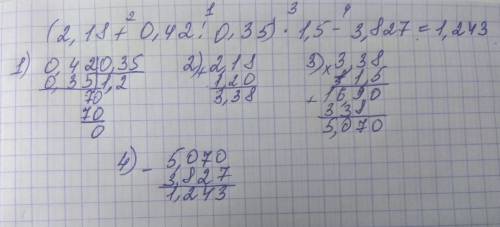 2 1 3 4
(2,18 + 0,42 : 0,35) · 1,5 − 3,827 = 1,243
1) 0,420,35 2) + 2,18 3) × 3,38
0,35 1,2 1,20 1,5
70 3,38 + 1690
70 338
0 5,070
4) − 5,070
3,827
1,243